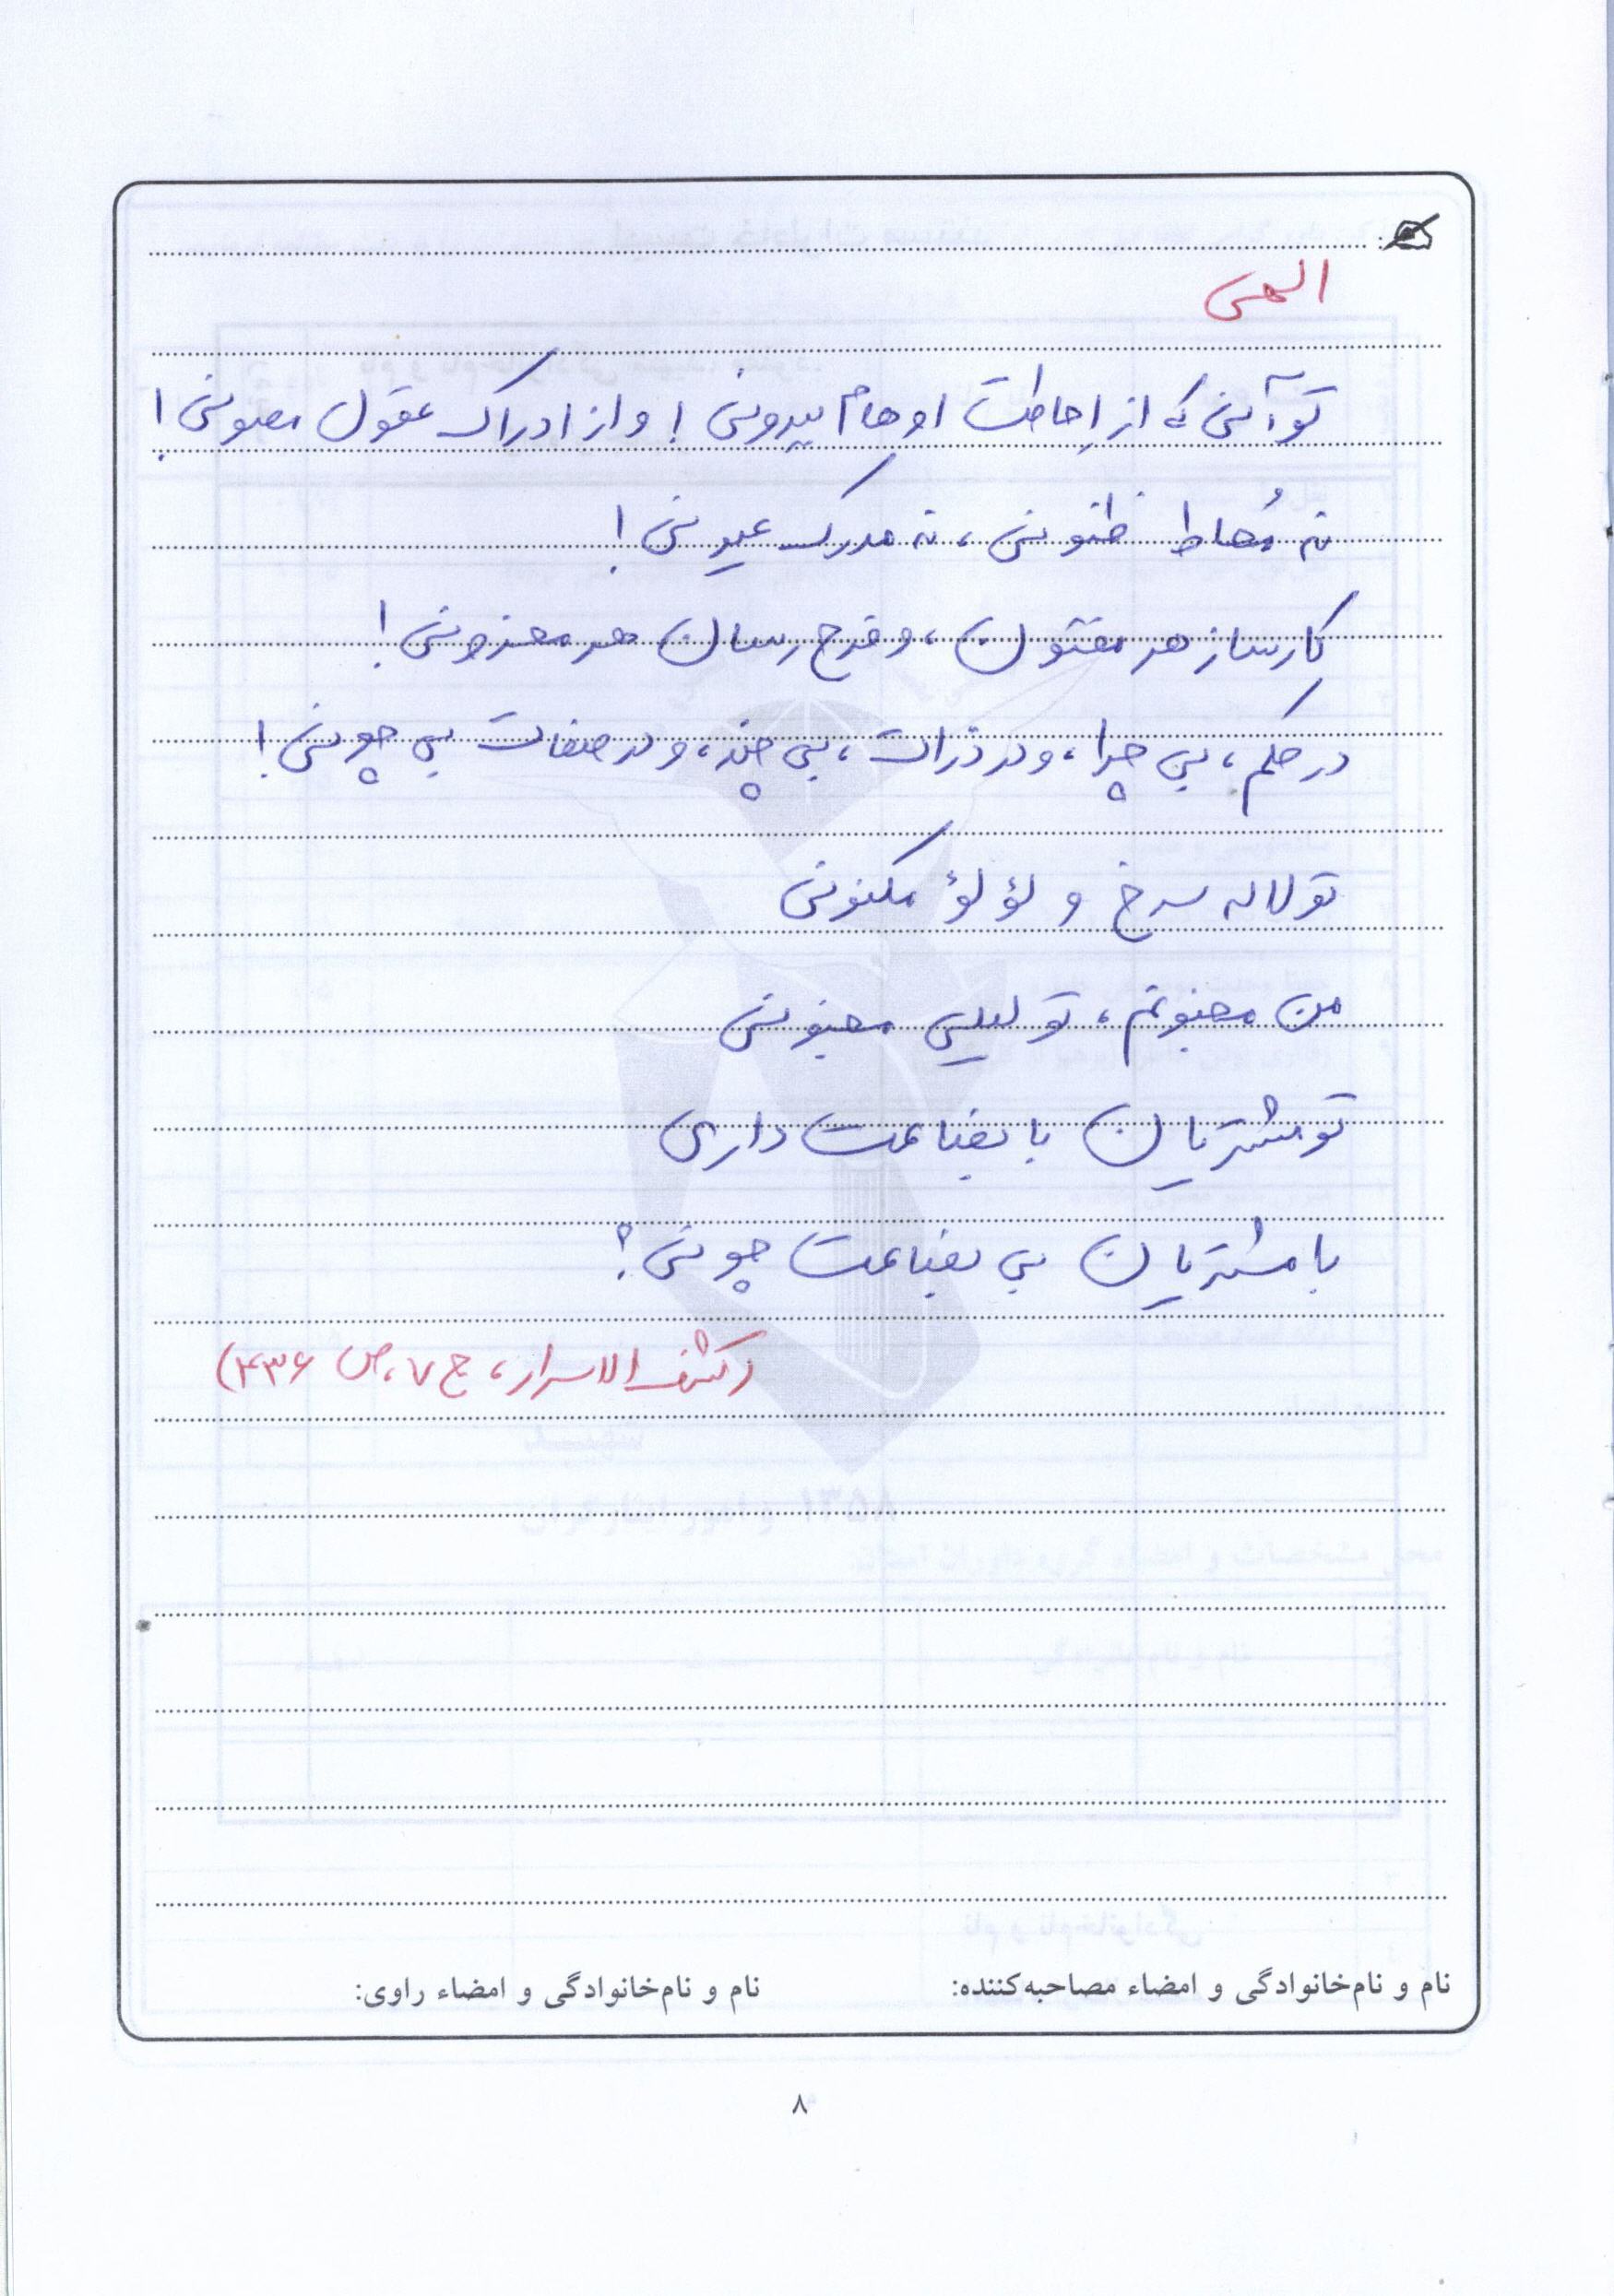 الهی
تو آنی که از اِحاطت اوهام بیرونی! و از ادراک عقول مصونی!
نه مُحاط ظنونی، نه مدرک عیونی!
کارساز هر مفتون، و فرج رسان هر محزونی!
در حکم، بی چرا، و در ذرات، بی چند، و در صفات بی چونی!
تو لاله سرخ و لؤلؤ مکنونی
من مجنونم، تو لیلی مجنونی
تو مشتریان با بضاعت داری
با مشتریان بی بضاعت چونی؟
(کشف الاسرار، ج ۷، ص ۴۳۶)
نام و نام‌خانوادگی و امضاء مصاحبه‌کننده: نام و نام‌خانوادگی و امضاء راوی:
۸